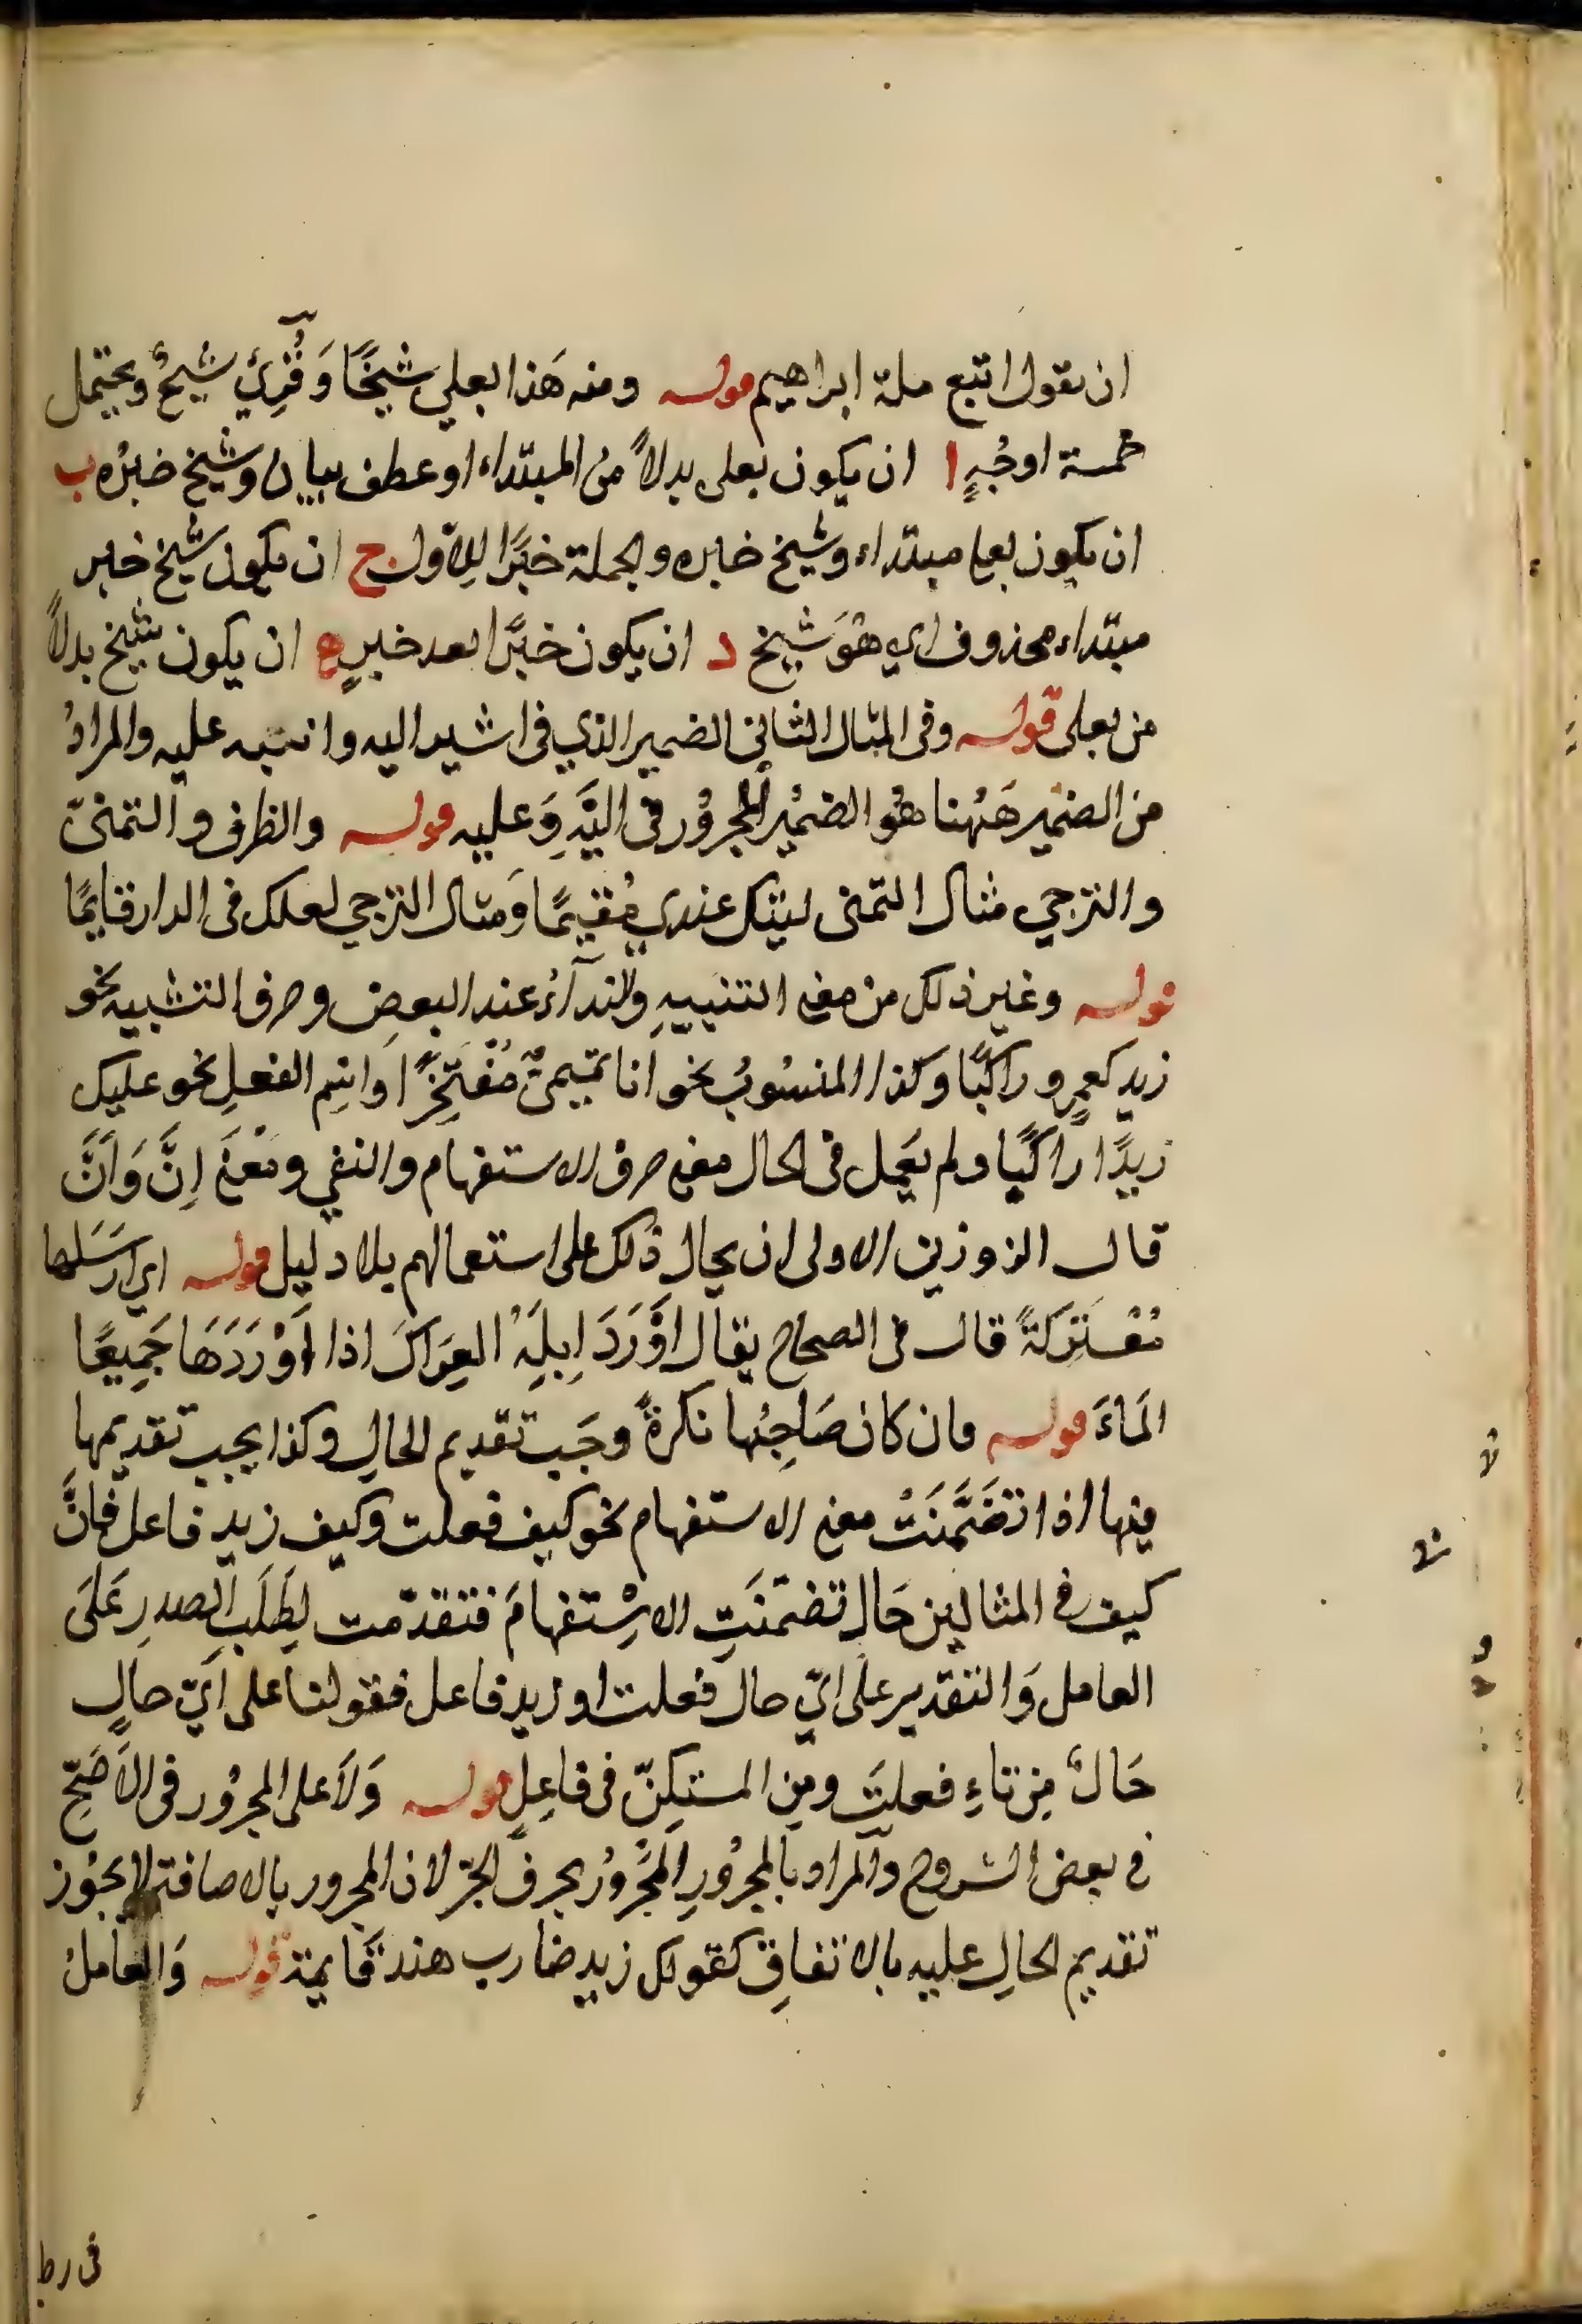 ان نقول اتبع ملة ابراهيم قوله ومنه هَذا بعلي شيخًا وَقُرِئ شيخٌ ويحتمل
خمسة اوجُهٍ ا ان يكون بعلى بدلاً منَ المبتداء او عطف بيان وشيخ خبرُه ب
ان يكون بعلي مبتداء وشيخ خبره والجملة خبرًا للاول ج ان يكون شيخ خبر
مبتداء محذوف اي هوَ شيخ د ان يكون خبرًا بعد خبرٍ ه ان يكون شيخ بدلاً
من بعلى قوله وفى المثال الثانى الضمير الذي فى اشير اليه وانبه عليه والمرادُ
من الضمير هَهُنا هُو الضمُير المجرُور فى اليَهِ وَعليه قوله والظرف والتمنىّ
والترجي مثال التمنى ليتك عندي مُقيمًا وَمثال الترجي لعلك فى الدار قايمًا
قوله وغير ذلك من معنى التنبيهِ والندآءُ عند البعض وحرف التشبيه نحو
زيد كعمرٍو راكبًا وكذا المنسُوبُ نحو انا تميمىٌّ مُفْتَخِرًا واسِم الفعلِ نحو عليك
زيدًا راكبًا ولم يَعمل فى الحال معنى حرف الاستفهام والنفي ومَعْنَى اِنَّ وَاَنَّ
قال الزوزين الاولى ان يحال ذلك على استعمالهم بلا دليل قوله اي اَرسَلها
مُعْتَرِكَةً قال فى الصحاح يقال اَوْرَدَ اِبِلَهُ العِرَاكَ اذا اَوْرَدَهَا جَمِيعًا
المَاءَ قوله فان كان صَاحِبُها نكرةً وجَب تقديم الحالِ وكذا يجب تقديمها
فيها اذا تضَمَّنَتْ معنى الاستفهام نحو كيف فعلت وكيف زيد فاعل فانَّ
كيف فى المثالين حَال تضمّنَتِ الاِسْتفهامَ فتقدّمت لِطَلَبِ الصدرِ عَلىَ
العامل وَالتقدير على ايّ حال فعلت او زيد فاعل فقولنا على اَيّ حالٍ
حَالٌ مِن تاءِ فعلتَ ومِن المستكِنّ فى فاعِلٍ قوله وَلاَ على المجرُور فى الاَصَحِّ
فى بعض الشروح والمراد بالمجرُورِ المجَرُورُ بحرف الجرّ لان المجرور بالاضافة لا يجُوز
تقديم الحالِ عليه بالاتفاقِ كقولك زيد ضارب هند قَايمة قوله وَالعاملُ